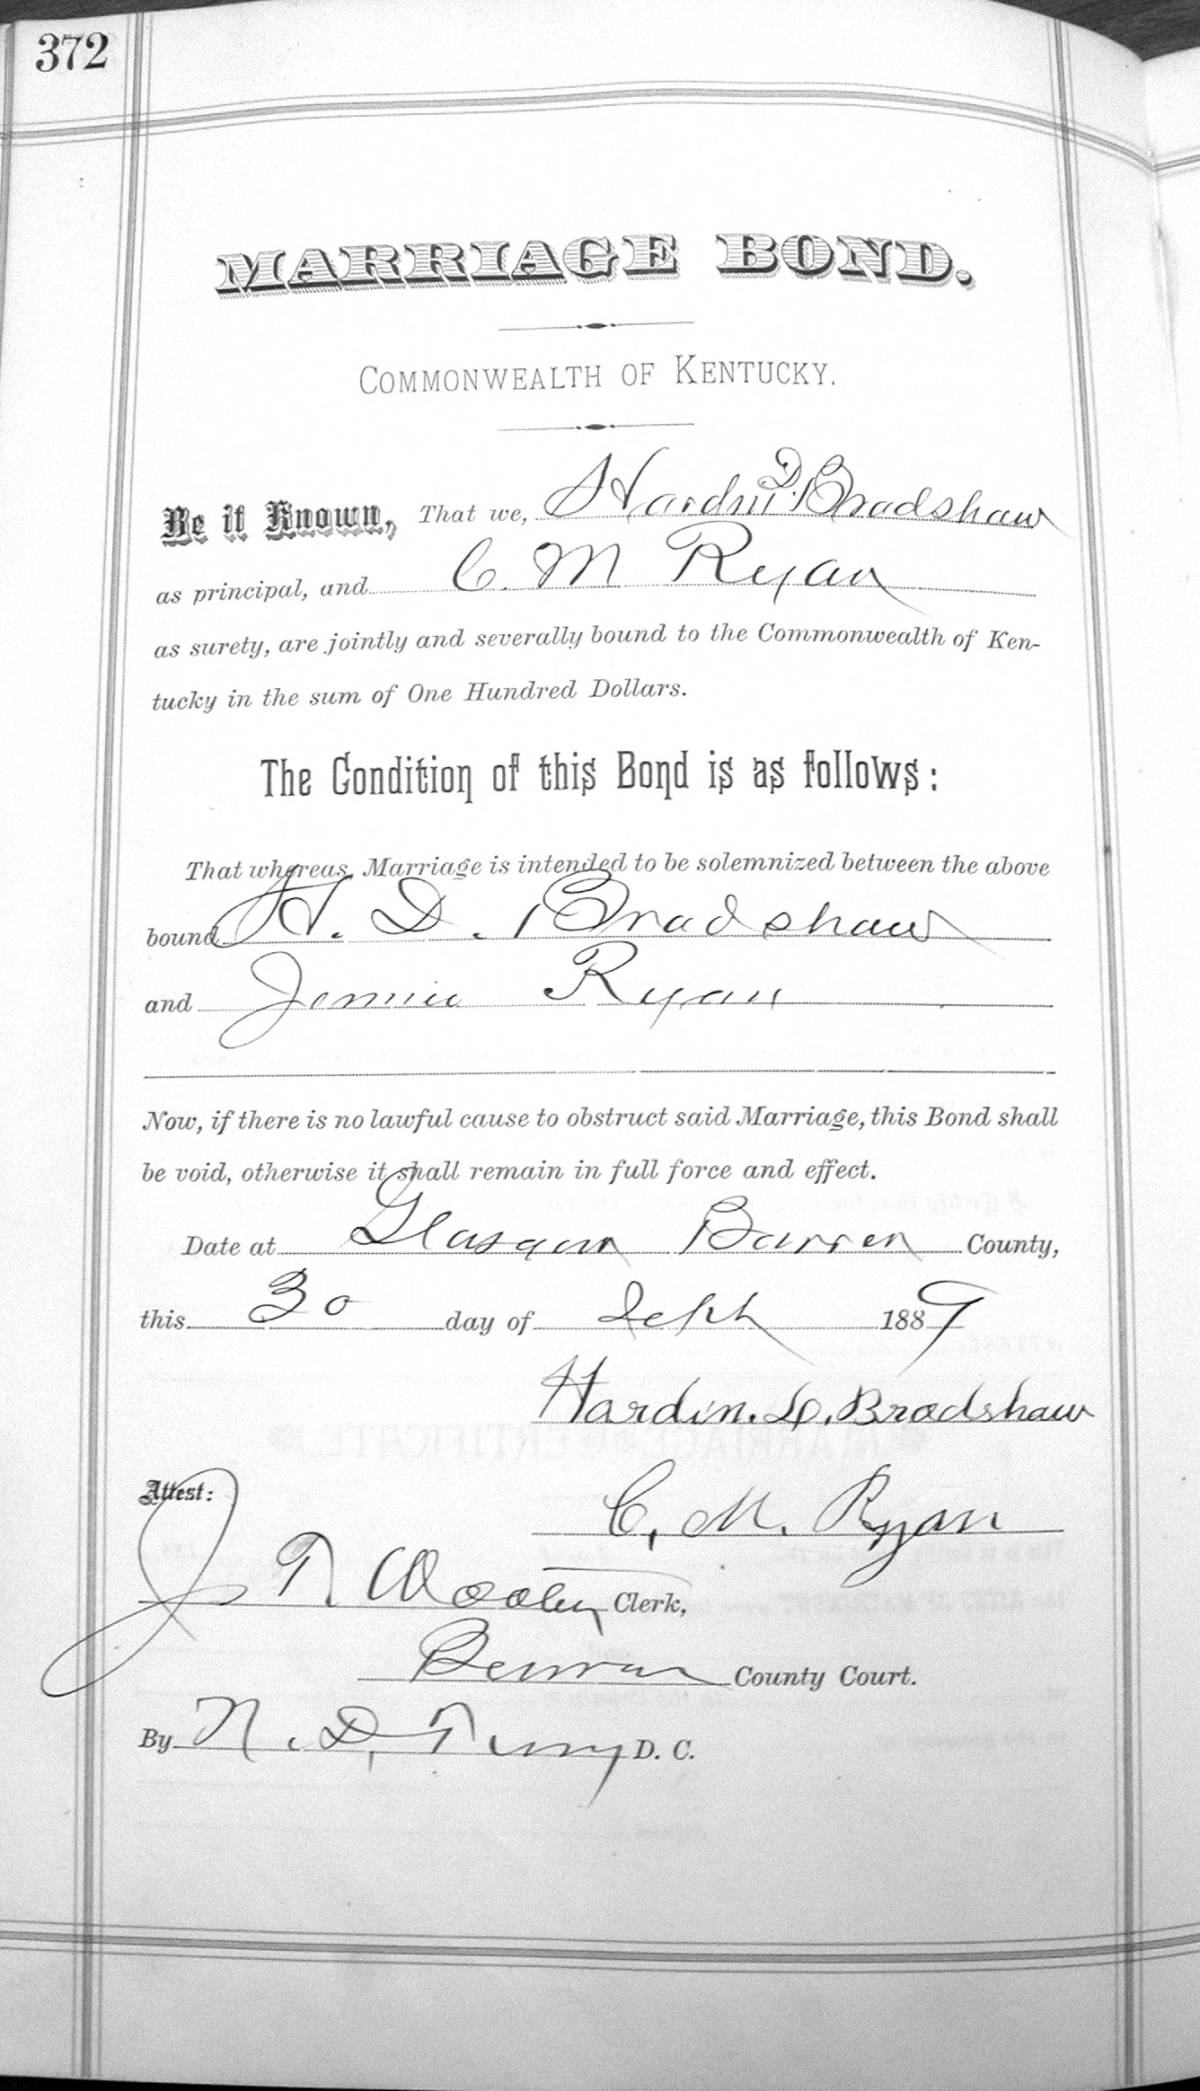 372
MARRIAGE BOND.
COMMONWEALTH OF KENTUCKY.
Be it Known, That we, Hardin D. Bradshaw
as principal, and C. M Ryan
as surety, are jointly and severally bound to the Commonwealth of Ken-
tucky in the sum of One Hundred Dollars.
The Condition of this Bond is as follows:
That whereas, Marriage is intended to be solemnized between the above
bound H. D. Bradshaw
and Jennie Ryan
Now, if there is no lawful cause to obstruct said Marriage, this Bond shall
be void, otherwise it shall remain in full force and effect.
Date at Glasgow Barren County,
this 30 day of Sept 1889
Hardin. D. Bradshaw
Attest:
C. M. Ryan
J T Wooten Clerk,
Barren County Court.
By N. D. Terry D. C.